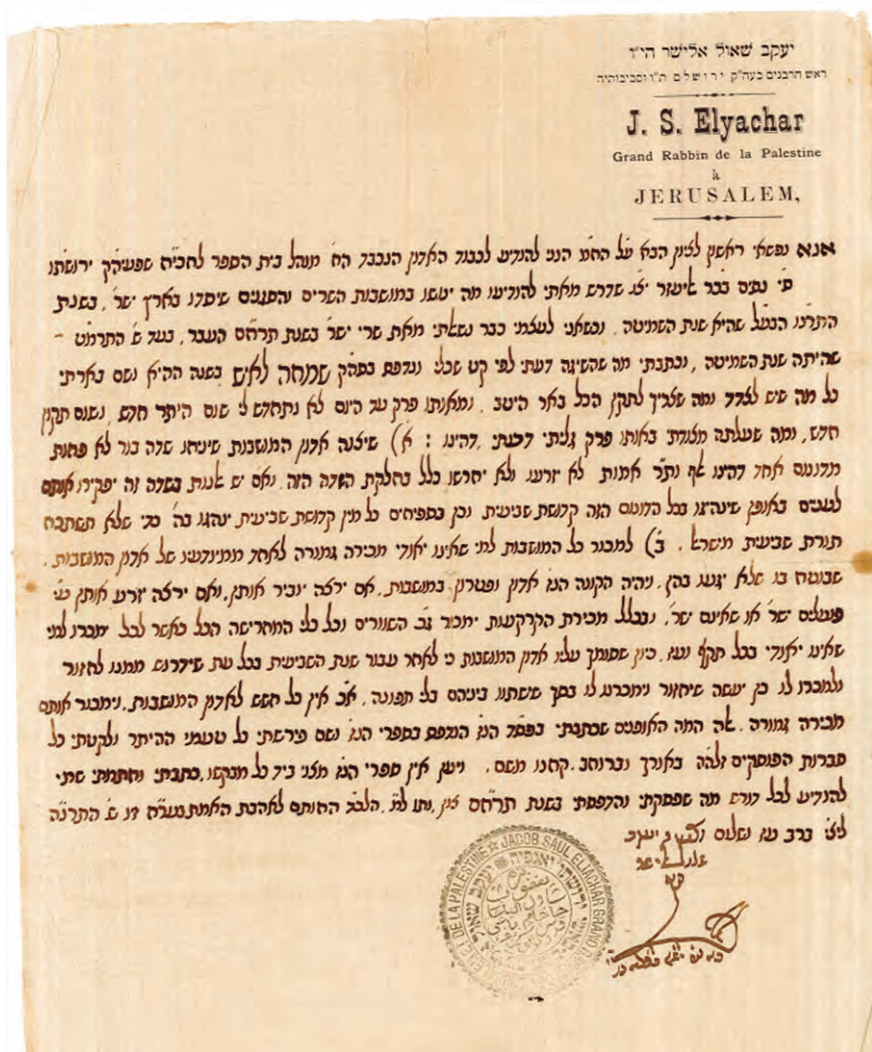 יעקב שאול אלישר הי"ו
ראש הרבנים בעה"ק ירושלם ת"ו וסביבותיה
J. S. Elyachar
Grand Rabbin de la Palestine
à
JERUSALEM,
אנא נפשאי ראשון לציון הבא על החתום הנני להודיע לכבוד האדון הנכבד מנהל בית הספר לחכי"ח שפעיה"ק ירושת"ו
נסים בכר שדרש מאתי להודיעו מה יעשו במושבות השרים והסגנים שיסדו בארץ ישר' בשנת
שהיא שנת השמיטה. כבר נשאלתי מאת שרי ישר' בשנת תרח"ם העבר, בעד ש' התרמ"ט -
שהיתה שנת השמיטה, וכתבתי מה שהשיגה דעתי לפי קט שכלי ונדפס בספרי שמחה לאיש בשנה ההיא ושם בארתי
כל מה שיש לצדד ומה שצריך לתקן הכל באר היטב. ומאותו פרק עד היום לא נתחדש לי שום היתר חדש, ושום תקון
חדש, ומה שעלתה מצודתי באותו פרק גליתי דעתי, דהינו: א) שיצוה אדון המושבות שיניחו שדה בור לא פחות
מדונום אחד דהינו אלף ות"ר אמות לא יזרעו ולא יחרשו כלל בחלקת השדה הזה. ואם יש אילנות בשדה זה יפקירו אותם
לעניים באופן שינהיגו בכל הדונום הזה קדושת שביעית וכן בספיחים כל מין קדושת שביעית ינהגו בה כדי שלא תשתכח
תורת שביעית מישראל. ב) למכור כל המושבות למי שאינו יאודי מכירה גמורה לאחד ממיודעיו של אדון המושבות.
שבוטח בו שלא יבגוד בהן. ויהיה הקונה הנז' אדון ופטרון במושבות, אם ירצה יוביר אותן, ואם ירצה יזרע אותן ע"י
פועלים ישר' או שאינם ישר', ובכלל מכירת הקרקעות ימכור ג"כ השוורים וכל כלי המחרישה הכל כאשר לכל ימכרו למי
שאינו יאודי בכל תקף ועז. כיון שסומך עליו אדון המושבות כי לאחר עבור שנת השביעית בכל עת שידרוש ממנו לחזור
ולמכרו לו כן יעשה שיחזור וימכרנו לו בסך שישתוו ביניהם בלי תפונה, א"כ אין כל חשש לאדון המושבות, וימכור אותם
מכירה גמורה. אלה המה האופנים שכתבתי בפסק הנז' הנדפס בספרי הנז' ושם פירשתי כל טעמי ההיתר ולקטתי כל
סברות הפוסקים זלה"ה באורך וברוחב. קחנו משם. ויען אין ספרי הנז' מצוי ביד כל מבקשו, כתבתי וחתמתי שתי
להודיע לכל דורש מה שפסקתי והדפסתי בשנת תרח"ם ציון, החותם לאהבת האמת
ליצי' ברב עז ושלום
JACOB SAUL ELJACHAR GRAND RABBIN DE LA PALESTINE